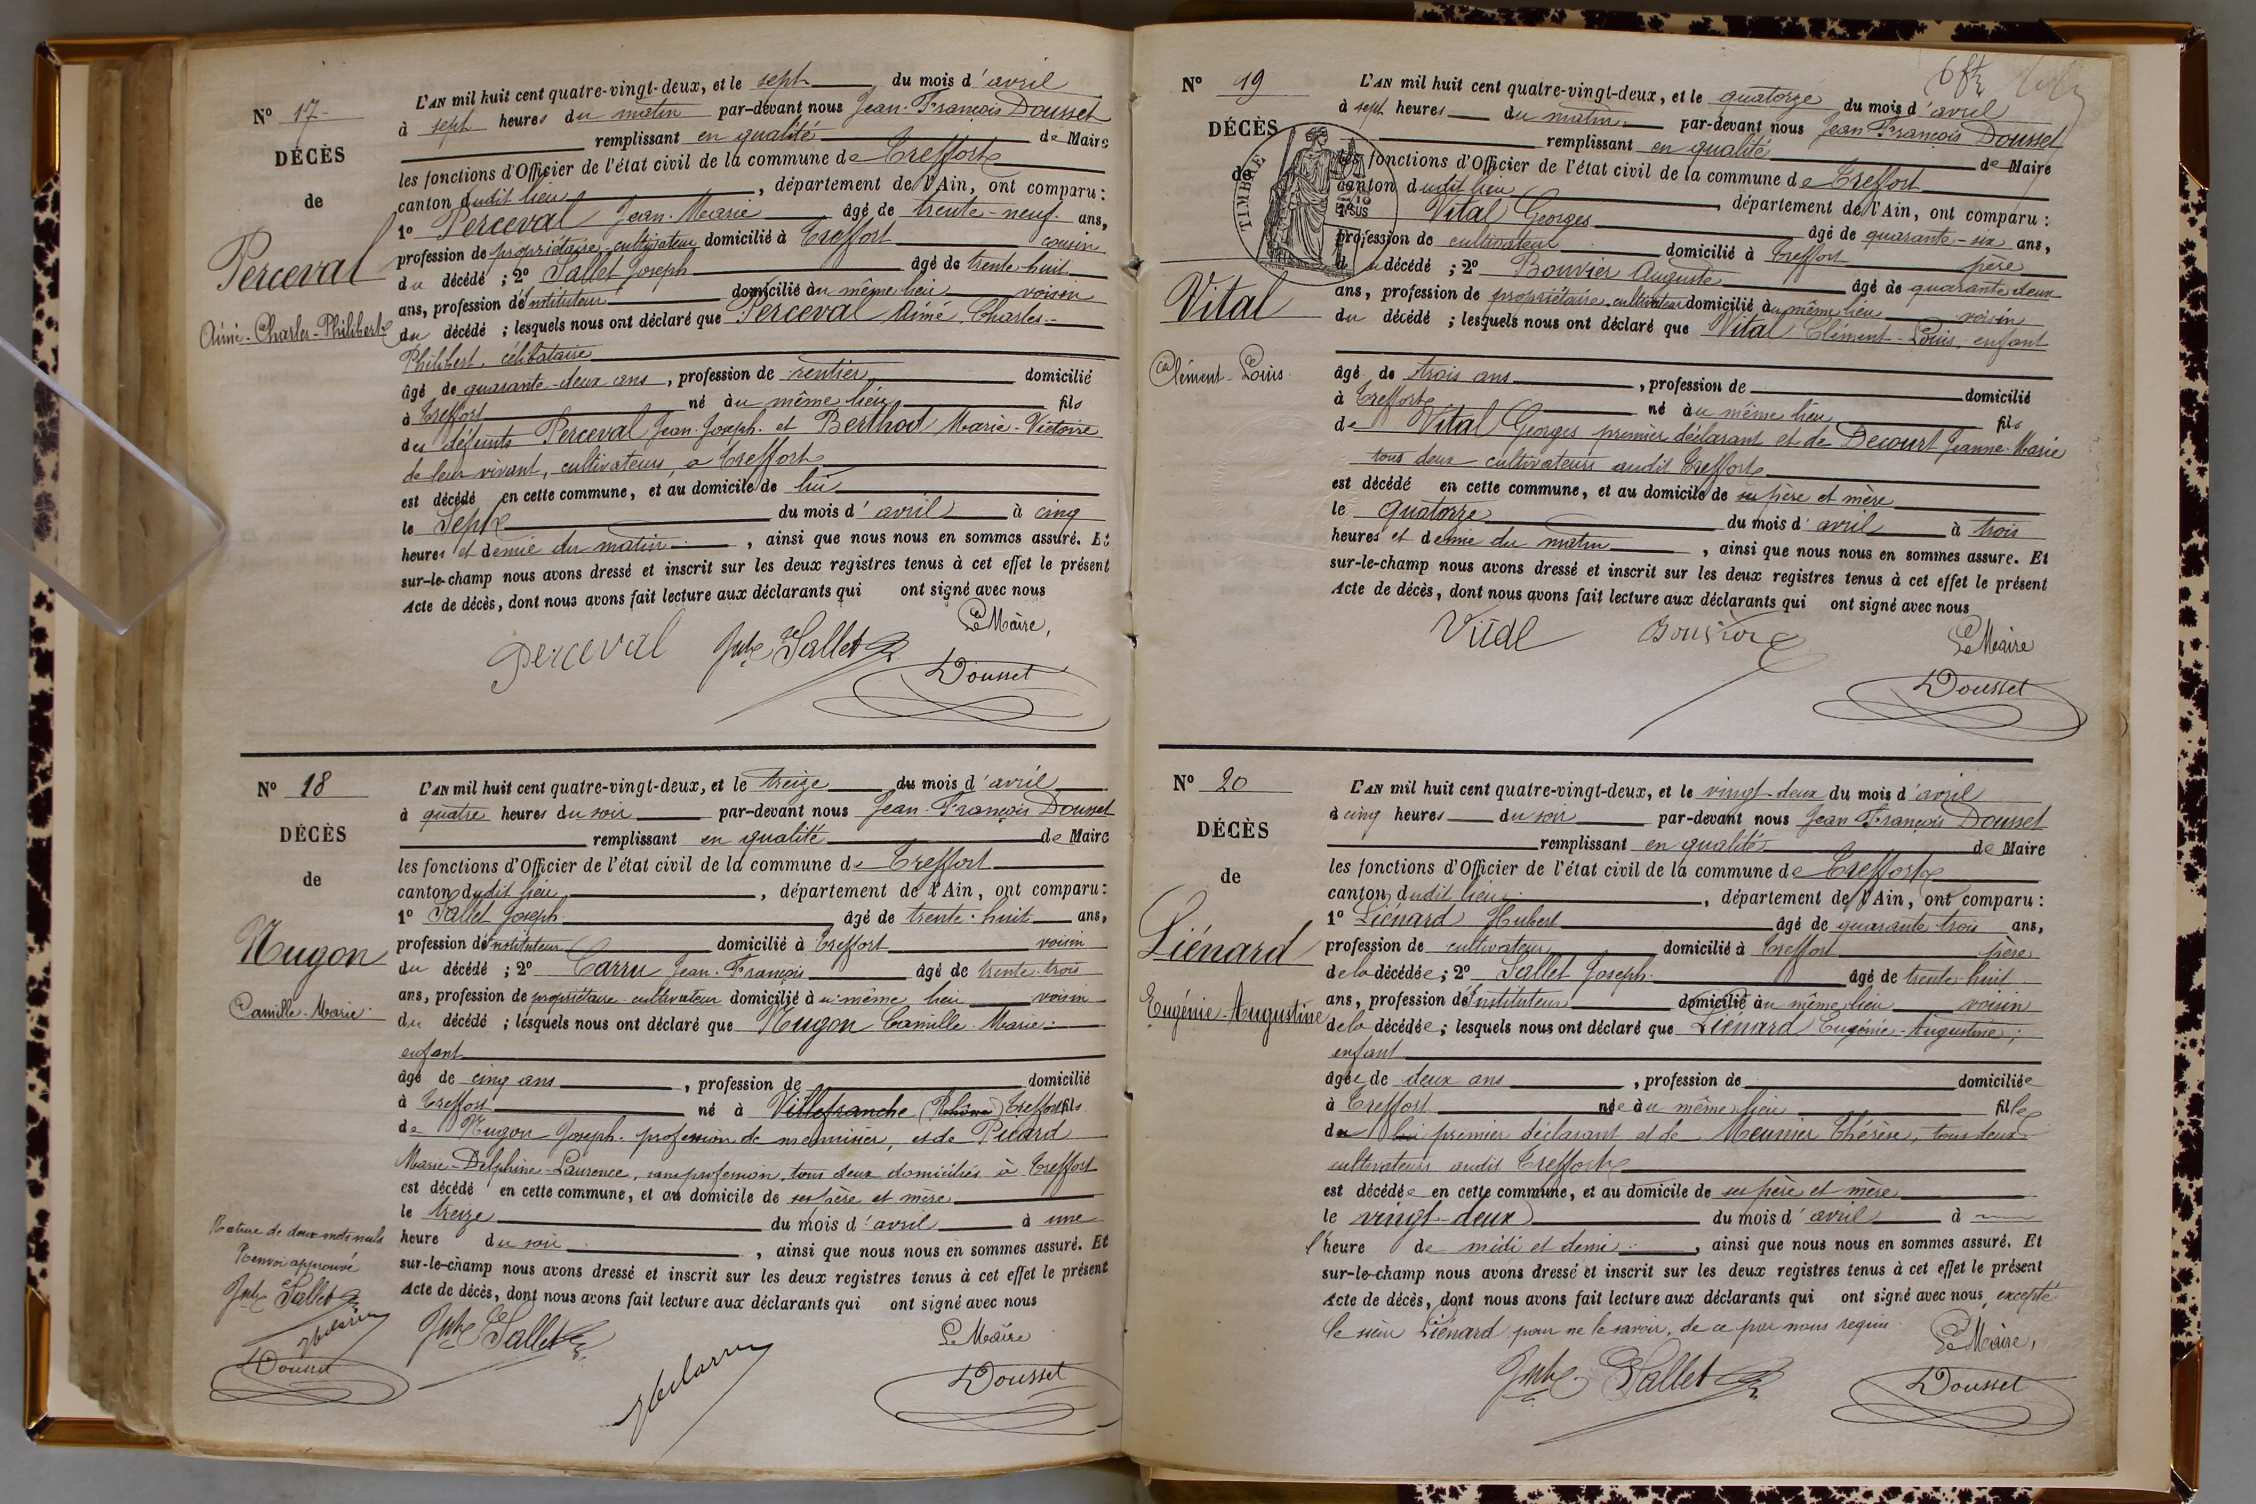 N° 17
DÉCÈS
de
Perceval
Aimé-Charles-Philibert
L'AN mil huit cent quatre-vingt-deux, et le sept du mois d'avril
à sept heures du matin par-devant nous Jean-François Dousset
remplissant en qualité de Maire
les fonctions d'Officier de l'état civil de la commune de Treffort
canton dudit lieu, département de l'Ain, ont comparu :
1° Perceval Jean-Marie âgé de trente-neuf ans,
profession de propriétaire-cultivateur domicilié à Treffort cousin
du décédé ; 2° Sallet Joseph âgé de trente-huit
ans, profession d'Instituteur domicilié au même lieu voisin
du décédé ; lesquels nous ont déclaré que Perceval Aimé-Charles-
Philibert, célibataire
âgé de quarante-deux ans, profession de rentier domicilié
à Treffort né au même lieu fils
des défunts Perceval Jean-Joseph et Berthod Marie-Victoire
de leur vivant, cultivateurs, à Treffort
est décédé en cette commune, et au domicile de lui
le Sept du mois d'avril à cinq
heures et demie du matin, ainsi que nous nous en sommes assuré. Et
sur-le-champ nous avons dressé et inscrit sur les deux registres tenus à cet effet le présent
Acte de décès, dont nous avons fait lecture aux déclarants qui ont signé avec nous
Le Maire,
Perceval Sallet
Dousset
N° 18
DÉCÈS
de
Nugon
Camille-Marie
L'AN mil huit cent quatre-vingt-deux, et le treize du mois d'avril
à quatre heures du soir par-devant nous Jean-François Dousset
remplissant en qualité de Maire
les fonctions d'Officier de l'état civil de la commune de Treffort
canton dudit lieu, département de l'Ain, ont comparu :
1° Sallet Joseph âgé de trente-huit ans,
profession d'Instituteur domicilié à Treffort voisin
du décédé ; 2° Carru Jean-François âgé de trente-trois
ans, profession de propriétaire-cultivateur domicilié au même lieu voisin
du décédé ; lesquels nous ont déclaré que Nugon Camille-Marie
enfant
âgé de cinq ans, profession de domicilié
à Treffort né à Villefranche (Rhône) Treffort fils
de Nugon Joseph, profession de menuisier, et de Picard
Marie-Delphine-Laurence, sans profession, tous deux domiciliés à Treffort
est décédé en cette commune, et au domicile de ses père et mère
le treize du mois d'avril à une
heure du soir, ainsi que nous nous en sommes assuré. Et
sur-le-champ nous avons dressé et inscrit sur les deux registres tenus à cet effet le présent
Acte de décès, dont nous avons fait lecture aux déclarants qui ont signé avec nous
Le Maire
Sallet
Dousset
Rature de deux mots nuls
Renvoi approuvé
Sallet
Dousset
N° 19
DÉCÈS
de
TIMBRE
Vital
Clément-Louis
L'AN mil huit cent quatre-vingt-deux, et le quatorze du mois d'avril
à sept heures du matin par-devant nous Jean François Dousset
remplissant en qualité de Maire
les fonctions d'Officier de l'état civil de la commune de Treffort
canton dudit lieu, département de l'Ain, ont comparu :
1° Vital Georges âgé de quarante-six ans,
profession de cultivateur domicilié à Treffort père
du décédé ; 2° Bouvier Auguste âgé de quarante-deux
ans, profession de propriétaire-cultivateur domicilié au même lieu voisin
du décédé ; lesquels nous ont déclaré que Vital Clément-Louis, enfant
âgé de trois ans, profession de domicilié
à Treffort né au même lieu fils
de Vital Georges premier déclarant et de Decourt Jeanne-Marie
tous deux cultivateurs audit Treffort
est décédé en cette commune, et au domicile de ses père et mère
le Quatorze du mois d'avril à trois
heures et demie du matin, ainsi que nous nous en sommes assuré. Et
sur-le-champ nous avons dressé et inscrit sur les deux registres tenus à cet effet le présent
Acte de décès, dont nous avons fait lecture aux déclarants qui ont signé avec nous
Le Maire
Vital Bouvier
Dousset
N° 20
DÉCÈS
de
Liénard
Eugénie-Augustine
L'AN mil huit cent quatre-vingt-deux, et le vingt-deux du mois d'avril
à cinq heures du soir par-devant nous Jean François Dousset
remplissant en qualité de Maire
les fonctions d'Officier de l'état civil de la commune de Treffort
canton dudit lieu, département de l'Ain, ont comparu :
1° Liénard Hubert âgé de quarante-trois ans,
profession de cultivateur domicilié à Treffort père
de la décédée ; 2° Sallet Joseph âgé de trente-huit
ans, profession d'Instituteur domicilié au même lieu voisin
de la décédée ; lesquels nous ont déclaré que Liénard Eugénie-Augustine,
enfant
âgée de deux ans, profession de domiciliée
à Treffort née au même lieu fille
du premier déclarant et de Meunier Thérèse, tous deux
cultivateurs audit Treffort
est décédée en cette commune, et au domicile de ses père et mère
le vingt-deux du mois d'avril à
l'heure de midi et demi, ainsi que nous nous en sommes assuré. Et
sur-le-champ nous avons dressé et inscrit sur les deux registres tenus à cet effet le présent
Acte de décès, dont nous avons fait lecture aux déclarants qui ont signé avec nous, excepté
le sieur Liénard pour ne le savoir, de ce par nous requis.
Le Maire,
Sallet
Dousset